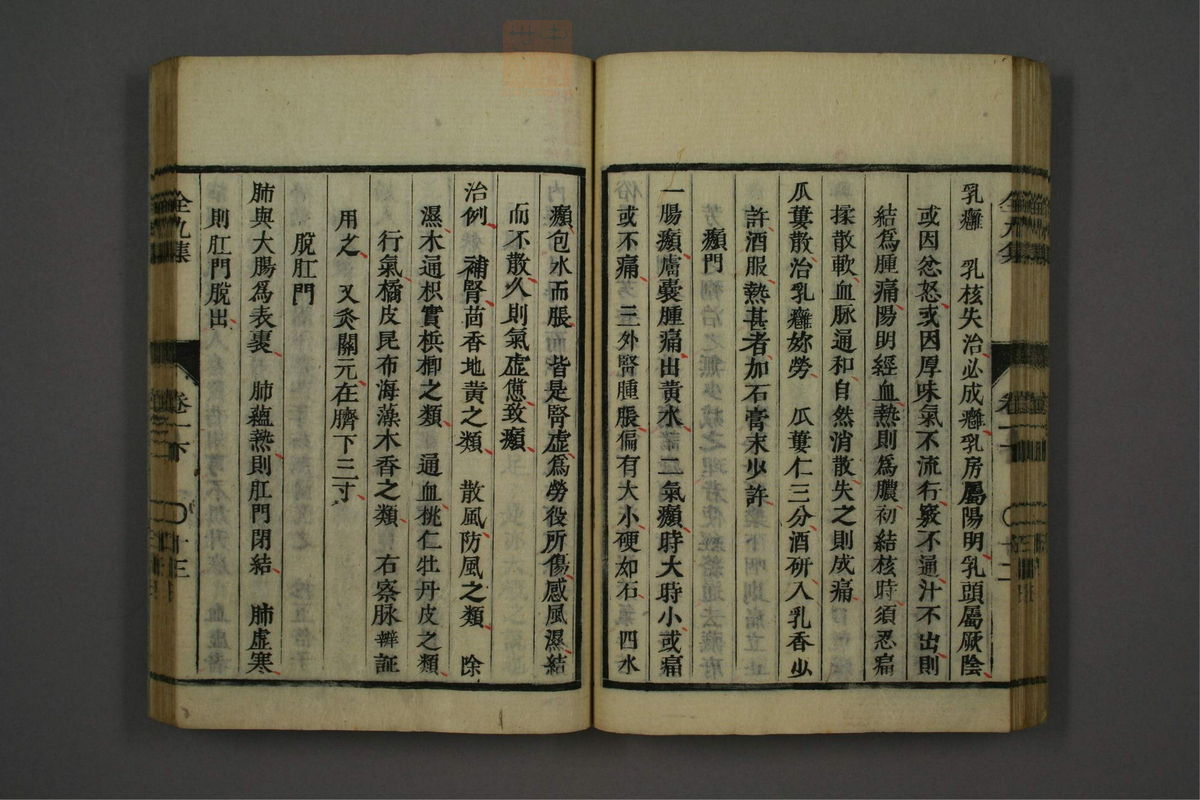 乳癰　乳核失治必成癰乳房屬陽明乳頭屬厥陰
或因忿怒或因厚味氣不流行竅不通汁不出則
結爲腫痛陽明經血熱則爲膿初結核時須忍痛
揉散軟血脉通和自然消散失之則成痛
瓜蔞散治乳癰妳勞　瓜蔞仁三分酒研入乳香少
許酒服熱甚者加石膏末少許
㿗門
一腸㿗膚囊腫痛出黃水二氣㿗時大時小或痛
或不痛　三外腎腫脹偏有大小硬如石　四水
㿗包水而脹　皆是腎虛爲勞役所傷感風濕結
而不散久則氣虛憊致㿗
治例　補腎茴香地黃之類　散風防風之類　除
濕木通枳實檳榔之類　通血桃仁牡丹皮之類
行氣橘皮昆布海藻木香之類　右察脉辨証
用之　又灸關元在臍下三寸
脫肛門
肺與大腸爲表裏　肺蘊熱則肛門閉結　肺虛寒
則肛門脫出
全九集
卷一下
十二
全九集
卷一下
十三